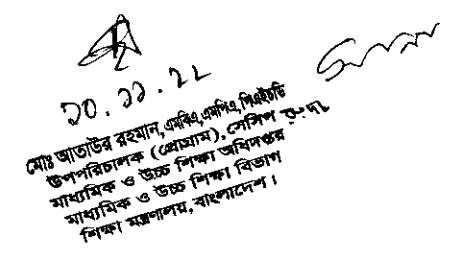 ২০.১১.২২
মোঃ আতাউর রহমান, এমবিএ, এমপিএ, পিএইচডি
উপপরিচালক (প্রোগ্রাম), সেসিপ
মাধ্যমিক ও উচ্চ শিক্ষা অধিদপ্তর
মাধ্যমিক ও উচ্চ শিক্ষা বিভাগ
শিক্ষা মন্ত্রণালয়, বাংলাদেশ।